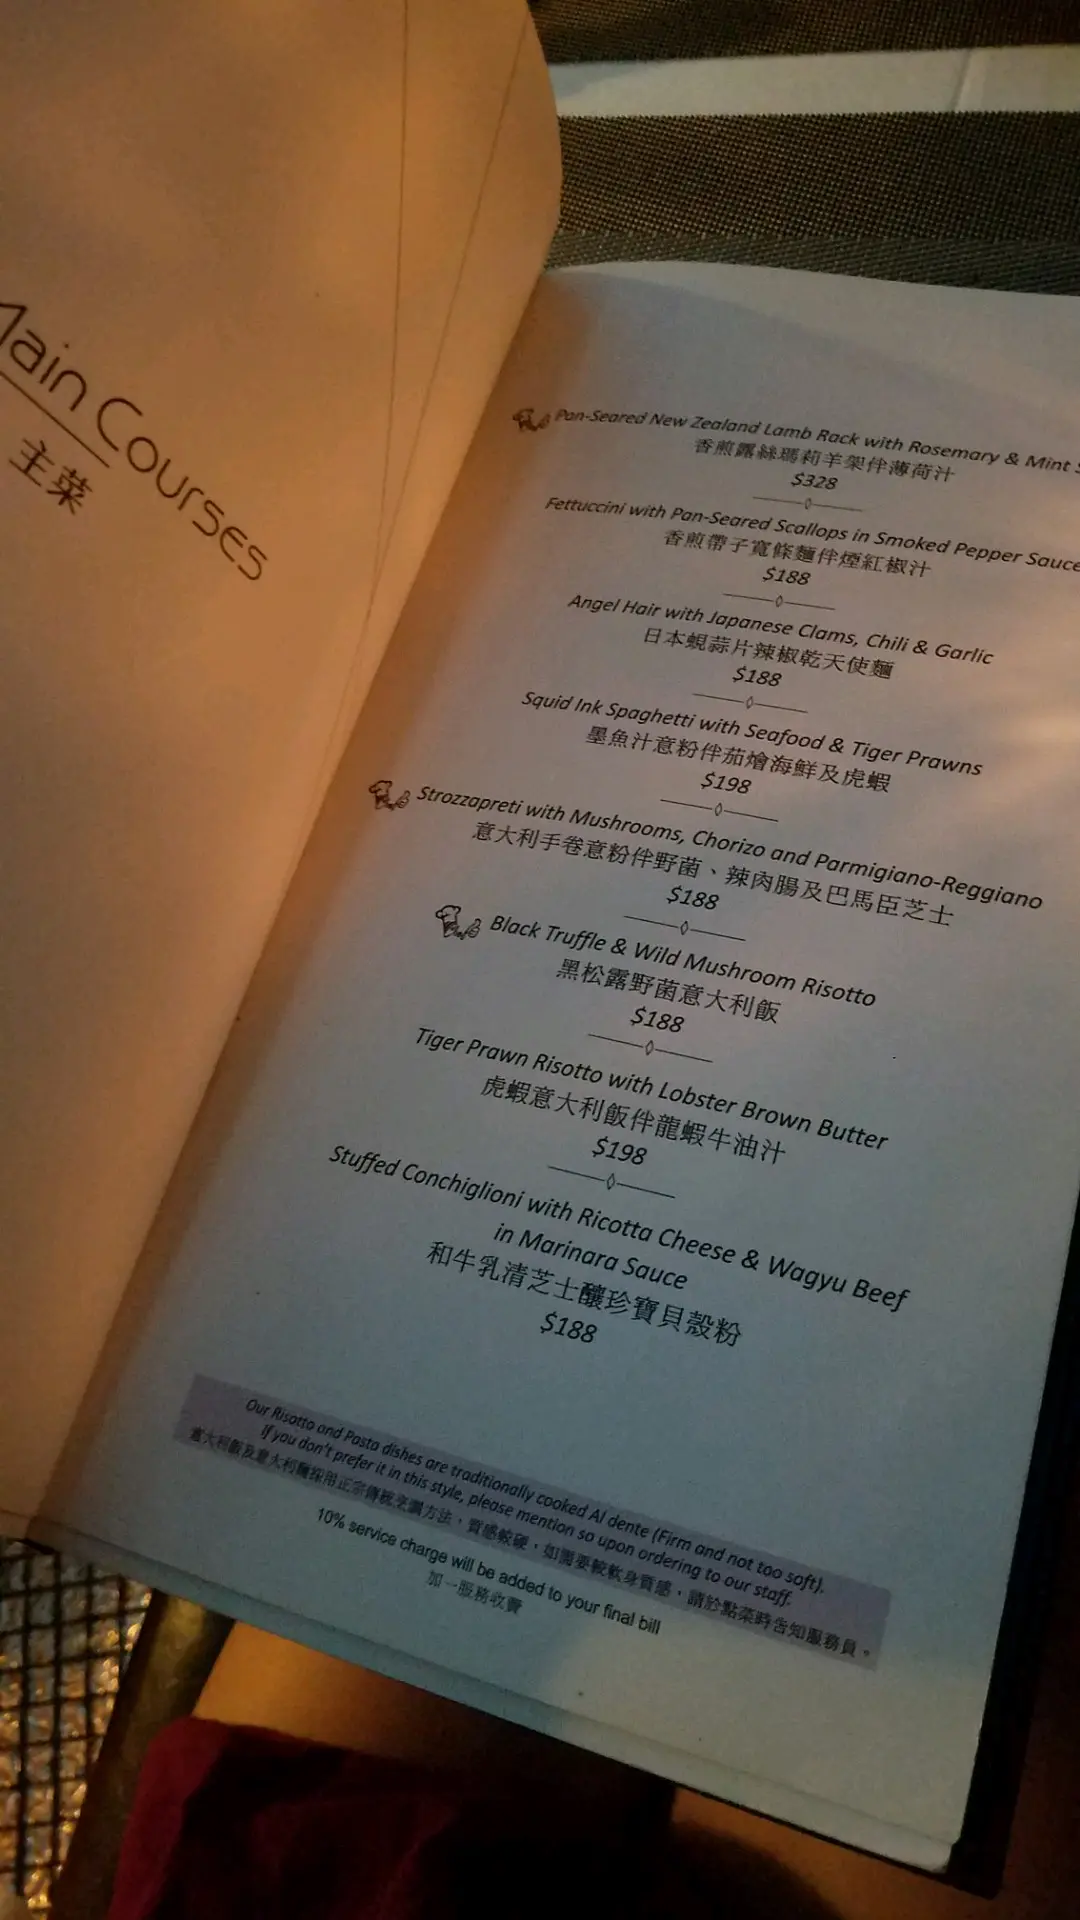 Main Courses
主菜
Pan-Seared New Zealand Lamb Rack with Rosemary & Mint
香煎露絲瑪莉羊架伴薄荷汁
$328
Fettuccini with Pan-Seared Scallops in Smoked Pepper Sauce
香煎帶子寬條麵伴煙紅椒汁
$188
Angel Hair with Japanese Clams, Chili & Garlic
日本蜆蒜片辣椒乾天使麵
$188
Squid Ink Spaghetti with Seafood & Tiger Prawns
墨魚汁意粉伴茄燴海鮮及虎蝦
$198
Strozzapreti with Mushrooms, Chorizo and Parmigiano-Reggiano
意大利手卷意粉伴野菌、辣肉腸及巴馬臣芝士
$188
Black Truffle & Wild Mushroom Risotto
黑松露野菌意大利飯
$188
Tiger Prawn Risotto with Lobster Brown Butter
虎蝦意大利飯伴龍蝦牛油汁
$198
Stuffed Conchiglioni with Ricotta Cheese & Wagyu Beef
in Marinara Sauce
和牛乳清芝士釀珍寶貝殼粉
$188
Our Risotto and Pasta dishes are traditionally cooked Al dente (Firm and not too soft).
If you don't prefer it in this style, please mention so upon ordering to our staff.
意大利飯及意大利麵採用正宗傳統烹調方法，質感較硬，如需要較軟身質感，請於點菜時告知服務員。
10% service charge will be added to your final bill
加一服務收費